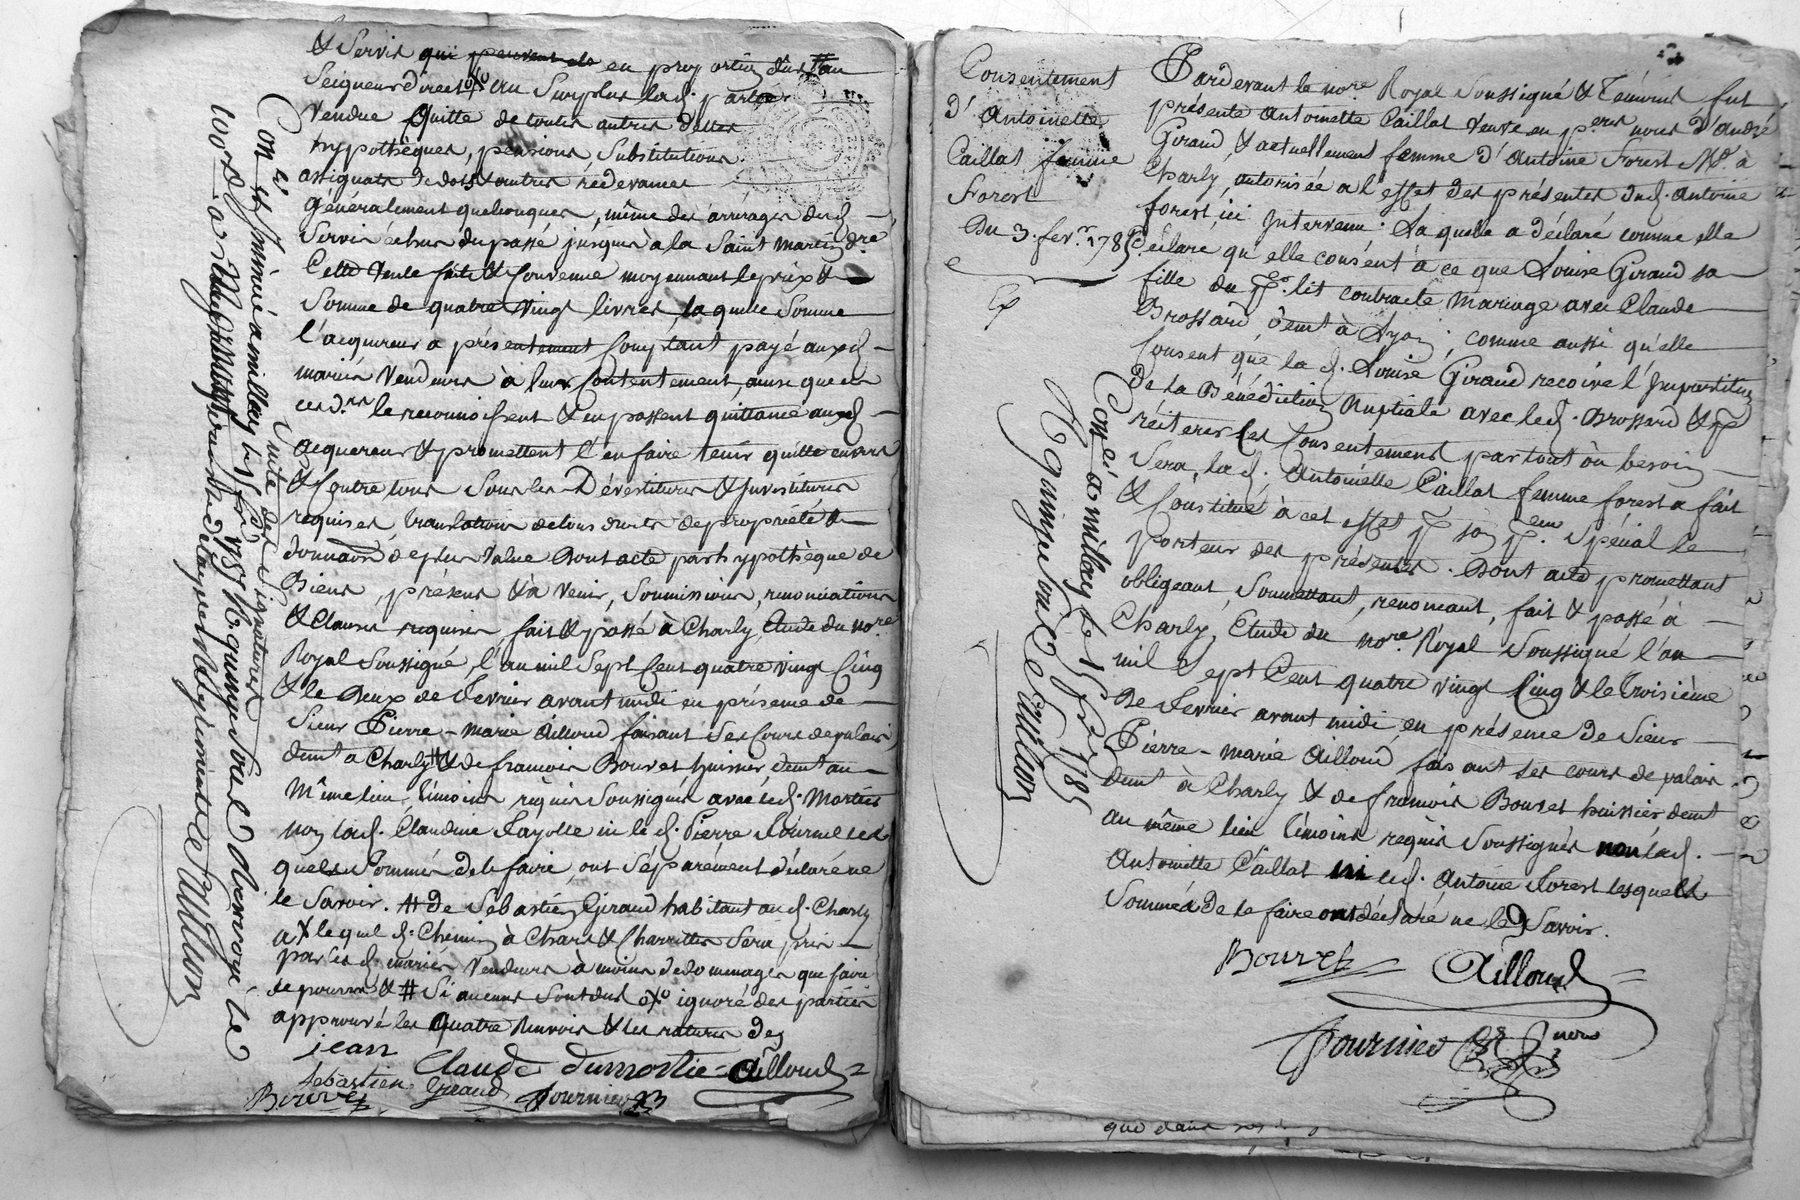 & Servis qui peuvent etre en proportion dus au
Seigneur direct o/o au Surplus lad. partie
vendue quitte de toutes autres dettes
hypothèques, pensions Substitutions
assignats de dots & autres redevances
généralement quelconques, même des arrérages desd.
Servis échus du passé jusques à la Saint martin dre
Cette vente faite & convenue moyennant le prix &
Somme de quatre vingt livres, laquelle Somme
l'acquereur a présentement Comptant payé auxd.
mariés vendeurs à leur Contentement, ainsi que
ces drs le reconnoissent & en passent quittance aud.
acquereur & promettent l'en faire tenir quitte envers
& Contre tous Sous les Dévestitures & Investitures
requises translation de tous droits de propriété &
donnaon de plus value Dont acte par hypothèque de
Biens, présens & à venir, Soumissions, renonciations
& Clauses requises, fait & passé à Charly Etude du nore
Royal Soussigné, l'an mil Sept Cent quatre vingt Cinq
& le Deux de Fevrier avant midi en présence de
Sieur Pierre-marie Ailloud faisant Ses Cours de palais
demt à Charly # & de francois Bouvet huissier, demt au
même lieu, témoins requis Soussignés avec led. Mortier
non lad. Claudine Fayolle ni le d. Pierre Fournel les
quels Sommés de le faire, ont Séparément déclaré ne
le Savoir. # de Sébastien Giraud habitant aud. Charly
a+ lequel d. Chemin à Chars & Charrettes Sera pris
par les d. mariés vendeurs à moins de domenages que faire
se pourra & # Si aucuns Sont dus o/o ignoré des parties
approuvé les quatre Renvois & les ratures des
jean Claude dumortie Ailloud
Sebastien Giraud
Bouvet Fournier
Suite des Signatures
Con lé & Insinué a millery le 15 fer 1785 R quinze Sols d observaon le
Caullon
Consentement
d'Antoinette
Caillat femme
Forest
Du 3. fevr. 1785.
Ex
Con lé à millery le 15 fer 1785
R quinze Sols
Caullon
Pardevant le nore Royal Soussigné & témoins fut
présente Antoinette Caillat veuve en peres nôces d'André
Giraud, & actuellement femme d'Antoine Forest Md à
Charly, autorisée a l'effet des présentes dud. Antoine
forest, ici Intervenu; Laquelle a déclaré comme elle
déclare qu'elle consent à ce que Louise Giraud sa
fille du pr. lit contracte mariage avec Claude
Brossard demt à Lyon; comme aussi qu'elle
Consent que la d. Louise Giraud recoive l'Imposition
de la Bénédiction Nuptiale avec led. Brossard & pr
réiterer Ces Consentemens partout où besoin
Sera, la d. Antoinette Caillat femme forest a fait
& Constitué à cet effet pr son pr. Spécial le
porteur des présentes. Dont acte promettant
obligeant, Soumettant, renoncant, fait & passé à
Charly, Etude du nore Royal Soussigné l'an
mil Sept Cent quatre vingt Cinq & le troisième
De Fevrier avant midi, en présence de Sieur
Pierre-marie Ailloud faisant ses cours de palais
demt à Charly & de francois Bouvet huissier demt
au même lieu témoins requis Soussignés non lad.
Antoinette Caillat ni led. Antoine Forest lesquels
Sommés de le faire ont déclaré ne le Savoir.
Bouvet Ailloud
Fournier
que dans